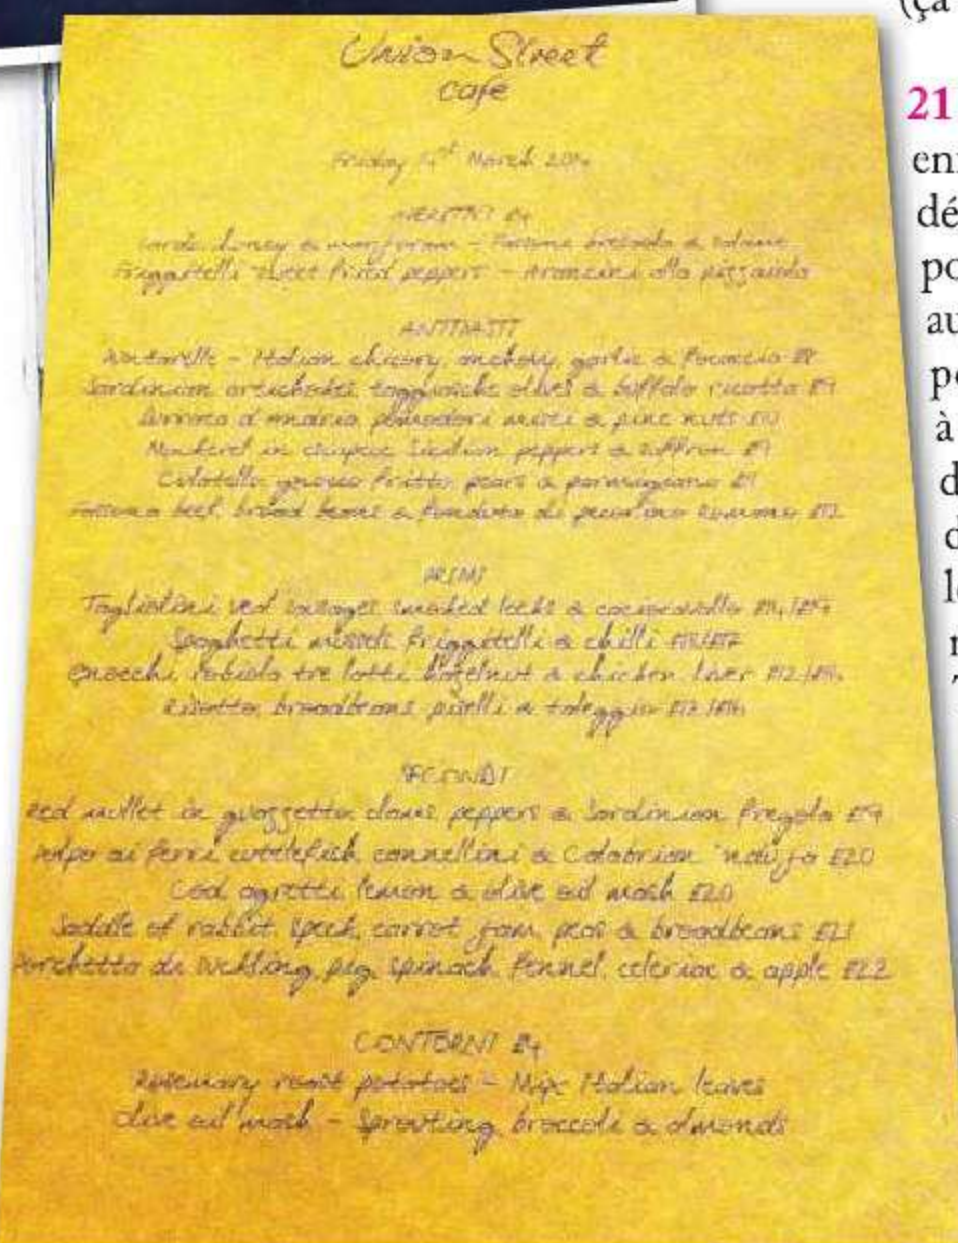 (ça
21
Union Street
cafe
Friday March
honey & marjoram -
Friggitelli sweet fried peppers - Arancini alla pizzaiola
ANTIPASTI
- Italian chicory, anchovy, garlic & £8
Sardinian artichokes, taggiasche olives & buffalo ricotta £9
Burrata d'andria pomodori misti & pine nuts £10
Mackerel in Sicilian peppers & saffron £9
Culatello gnocco fritto pears & parmigiano
beef broad beans & fonduta di pecorino Romano
PRIMI
Tagliolini veal sausages smoked leeks & caciocavallo
Spaghetti mussels friggitelli & chilli
Gnocchi robiola tre latti hazelnut & chicken liver
Risotto broadbeans piselli & taleggio
SECONDI
Red mullet in guazzetto clams peppers & Sardinian fregola £19
Polpo ai ferri cuttlefish cannellini & Calabrian 'nduja £20
Cod agretti lemon & olive oil mash £20
Saddle of rabbit speck, carrot jam, peas & broadbeans £21
Porchetta di suckling pig spinach fennel celeriac & apple £22
CONTORNI £4
Rosemary roast potatoes - Mix Italian leaves
Olive oil mash - Sprouting broccoli & almonds